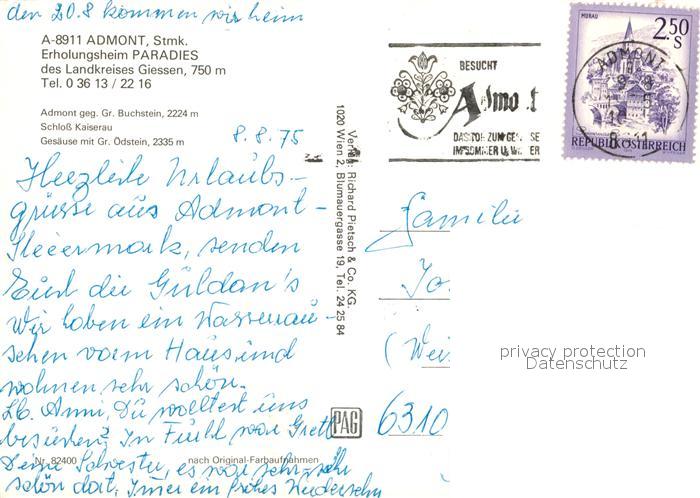 den 20.8 kommen wir heim
A-8911 ADMONT, Stmk.
Erholungsheim PARADIES
des Landkreises Giessen, 750 m
Tel. 0 36 13 / 22 16
Admont geg. Gr. Buchstein, 2224 m
Schloß Kaiserau
Gesäuse mit Gr. Ödstein, 2335 m
8.8.75
Herzliche Urlaubs-
grüsse aus Admont-
Steiermark, senden
Euch die Güldan's
Wir haben ein
sehen vorm Haus, und
wohnen sehr schön.
Lb. Anni, Du wolltest uns
besuchen? In war Gretl
Deine Schwester, es war sehr, sehr
schön dort. Immer ein frohes Wiedersehn
Nr. 82400
nach Original-Farbaufnahmen
Verlag: Richard Pietsch & Co. KG.
1020 Wien 2, Blumauergasse 19, Tel. 24 25 84
PAG
BESUCHT
Admont
DAS TOR ZUM GESÄUSE
IM SOMMER U. WINTER
MURAU
2.50
S
ADMONT
REPUBLIK ÖSTERREICH
Familie
Jo.
(Wei
6310
privacy protection
Datenschutz